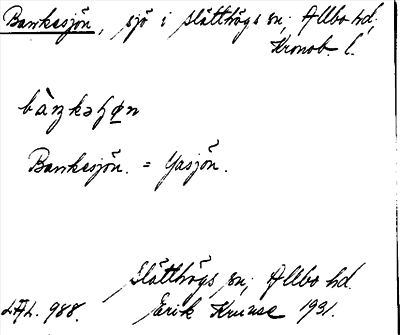 Bankesjön, sjö i Slätthögs sn; Allbo hd;
Kronob. l.
Bankesjön. = Yasjön.
Slätthögs sn; Allbo hd.
LAL. 988. Erik Kruuse 1931.